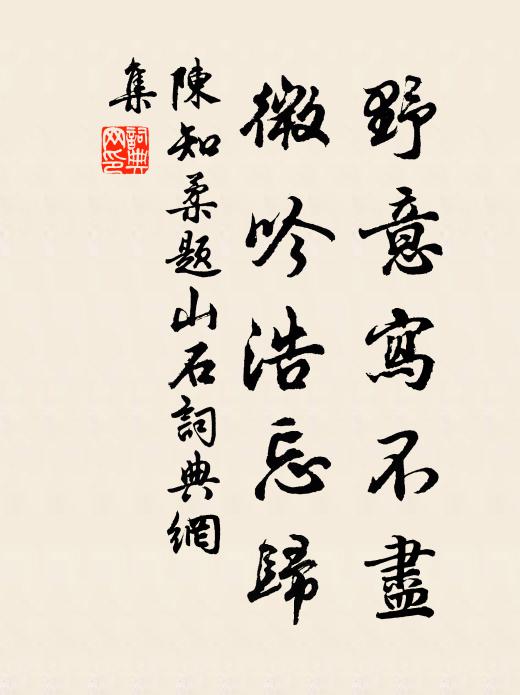 野意寫不盡
微吟浩忘歸
陳知柔題山石詞典網
集
詞典
网印